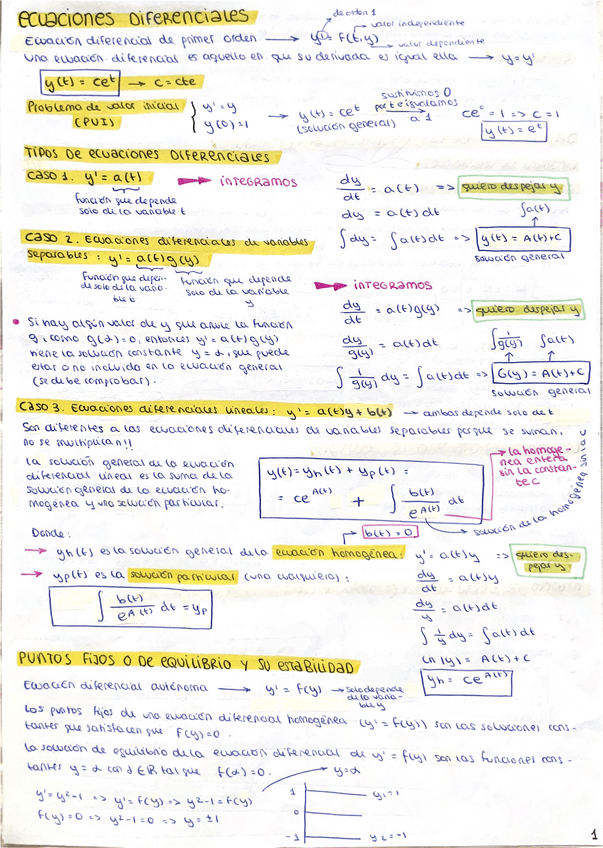 ECUACIONES DIFERENCIALES
de orden 1
Ecuación diferencial de primer orden → y' = f(t,y)
valor independiente
valor dependiente
Una ecuación diferencial es aquello en que su derivada es igual ella → y = y'
y(t) = ce^t → c = cte
Problema de valor inicial (PVI) { y' = y
y(0) = 1
→ y(t) = ce^t (solución general)
sustituimos 0 por t e igualamos a 1
ce^0 = 1 => c = 1
y(t) = e^t
TIPOS DE ECUACIONES DIFERENCIALES
CASO 1. y' = a(t) → INTEGRAMOS
función que depende
solo de la variable t
dy/dt = a(t) => quiero despejar y
dy = a(t) dt
∫a(t)
∫dy = ∫a(t)dt => y(t) = A(t)+C
solución general
CASO 2. Ecuaciones diferenciales de variables
separables: y' = a(t)g(y)
Función que depen-
de solo de la varia-
ble t
Función que depende
solo de la variable
y
→ INTEGRAMOS
dy/dt = a(t)g(y) => quiero despejar y
dy/g(y) = a(t)dt
∫1/g(y) ∫a(t)
∫ 1/g(y) dy = ∫a(t)dt => G(y) = A(t)+C
solución general
• Si hay algún valor de y que anule la función
g, como g(α)=0, entonces y' = a(t)g(y)
tiene la solución constante y = α, que puede
estar o no incluido en la ecuación general
(se debe comprobar).
CASO 3. Ecuaciones diferenciales lineales: y' = a(t)y + b(t) → ambas depende solo de t
Son diferentes a las ecuaciones diferenciales de variables separables porque se suman,
no se multiplican!!
La solución general de la ecuación
diferencial lineal es la suma de la
solución general de la ecuación ho-
mogénea y una solución particular.
y(t) = yh(t) + yp(t) =
= ce^A(t) + ∫ b(t)/e^A(t) dt
la homogé-
nea entera
sin la constan-
te c
solución de la homogénea sin la c
Donde:
b(t) = 0
→ yh(t) es la solución general de la ecuación homogénea:
y' = a(t)y => quiero des-
pejar y
→ yp(t) es la solución particular (una cualquiera):
∫ b(t)/e^A(t) dt = yp
dy/dt = a(t)y
dy/y = a(t)dt
∫ 1/y dy = ∫a(t)dt
Ln|y| = A(t) + C
yh = ce^A(t)
PUNTOS FIJOS O DE EQUILIBRIO Y SU ESTABILIDAD
Ecuación diferencial autónoma → y' = f(y) → solo depende
de la varia-
ble y
Los puntos fijos de una ecuación diferencial homogénea (y' = f(y)) son las soluciones cons-
tantes que satisfacen que f(y)=0.
La solución de equilibrio de la ecuación diferencial de y' = f(y) son las funciones cons-
tantes y = α con α ∈ ℝ tal que f(α) = 0.
y = α
y' = y²-1 => y' = f(y) => y²-1 = f(y)
f(y) = 0 => y²-1 = 0 => y = ±1
1 y₁ = 1
0
-1 y₂ = -1
1